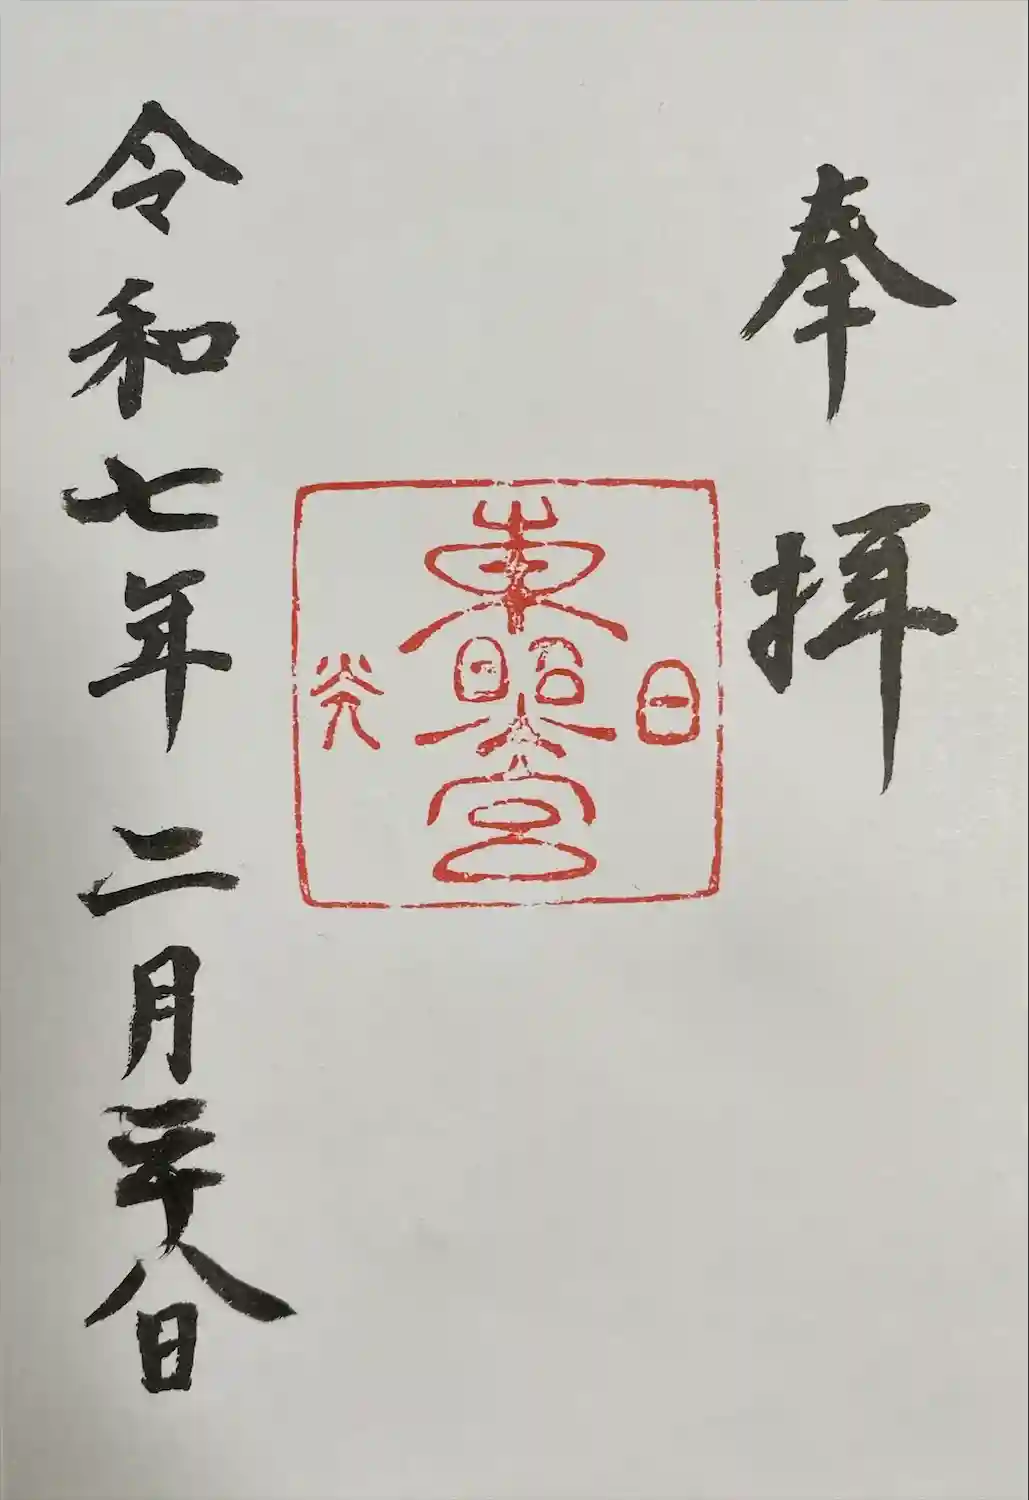 奉拝
日
東照宮
光
令和七年二月二十八日